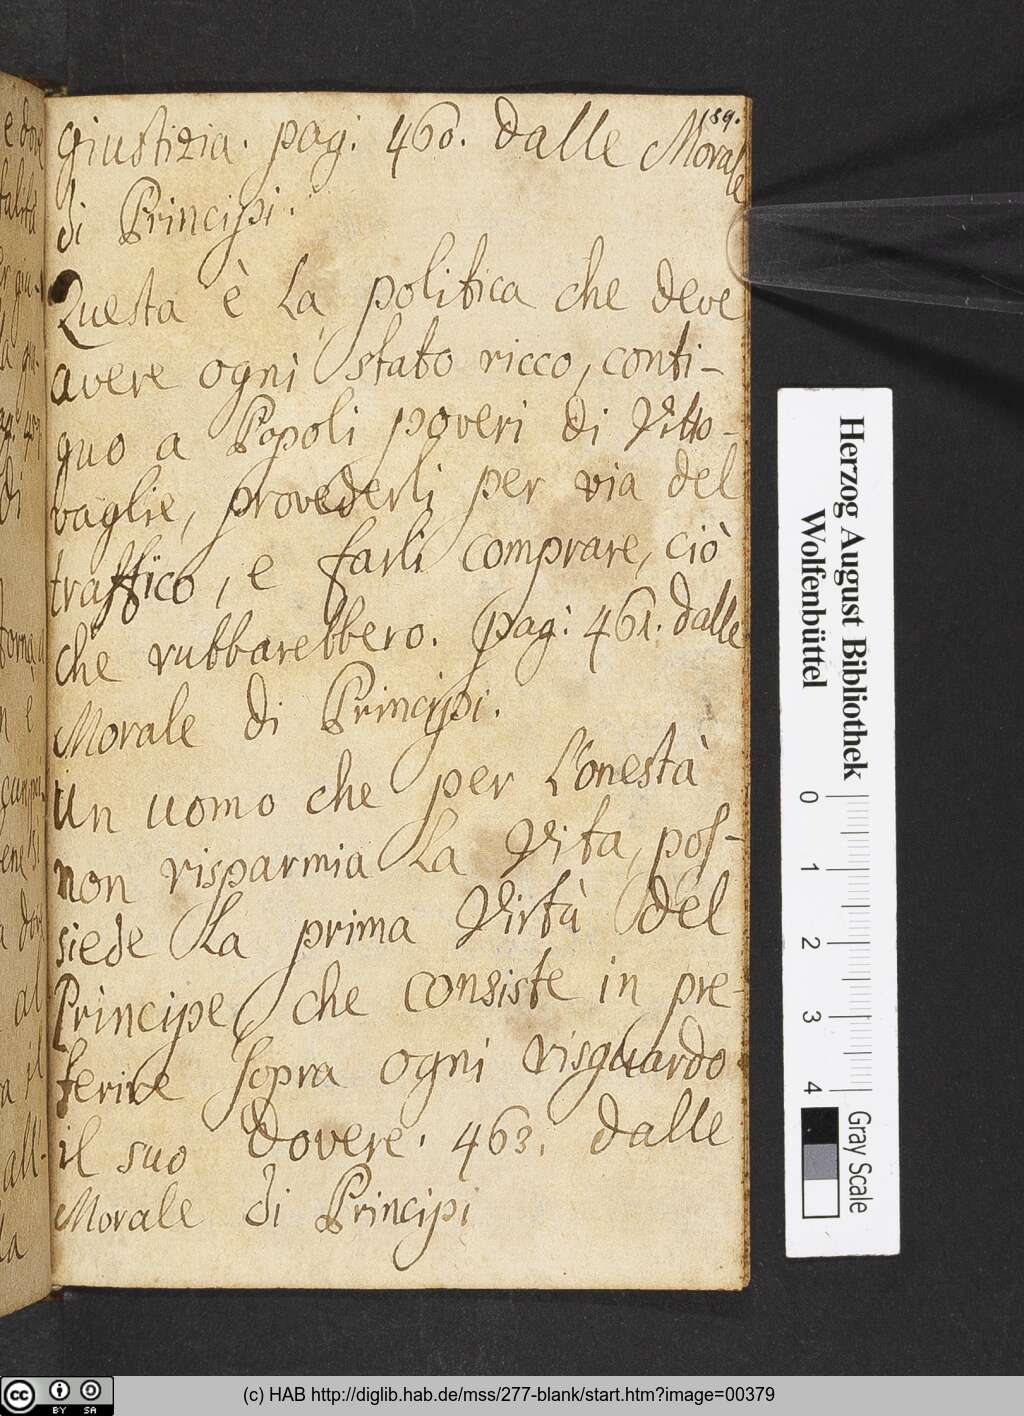 189.
giustizia. pag: 460. dalle Morale
di Principi.
Questa è La politica che deve
avere ogni stato ricco, conti-
guo a Popoli poveri di Vitto-
vaglie, provederli per via del
traffico, e farli comprare, ciò
che rubbarebbero. pag: 461. dalle
Morale di Principi.
Un uomo che per L'onestà
non risparmia La Vita, pos-
siede La prima Virtù del
Principe, che consiste in pre-
ferire sopra ogni risguardo
il suo dovere. 463. dalle
Morale di Principi
Herzog August Bibliothek
Wolfenbüttel
0 1 2 3 4
Gray Scale
cc BY SA
(c) HAB http://diglib.hab.de/mss/277-blank/start.htm?image=00379